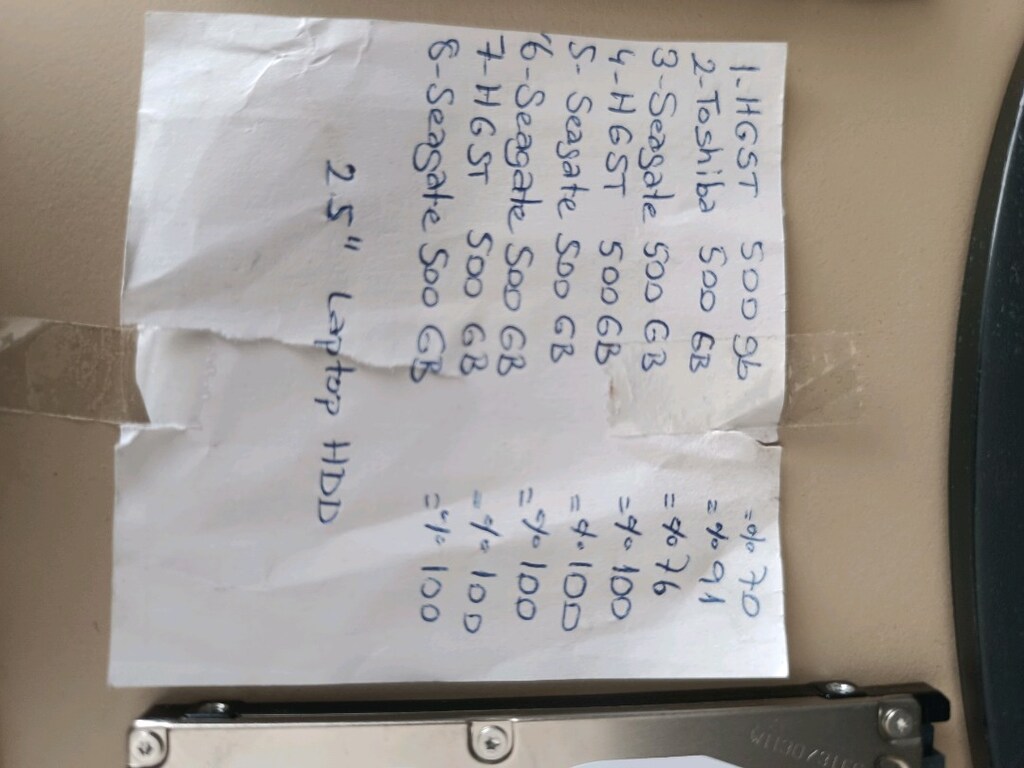 1-HGST 500 gb =%70
2-Toshiba 500 GB =%91
3-Seagate 500 GB =%76
4-HGST 500GB =%100
5- Seagate 500 GB =%100
6-Seagate 500 GB =%100
7-HGST 500 GB =%100
8-Seagate 500 GB =%100
2.5" Laptop HDD